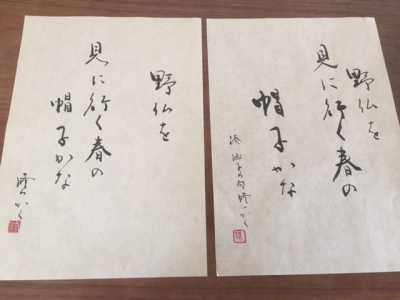 野仏を
見に行く春の
帽子かな
野仏を
見に行く春の
帽子かな